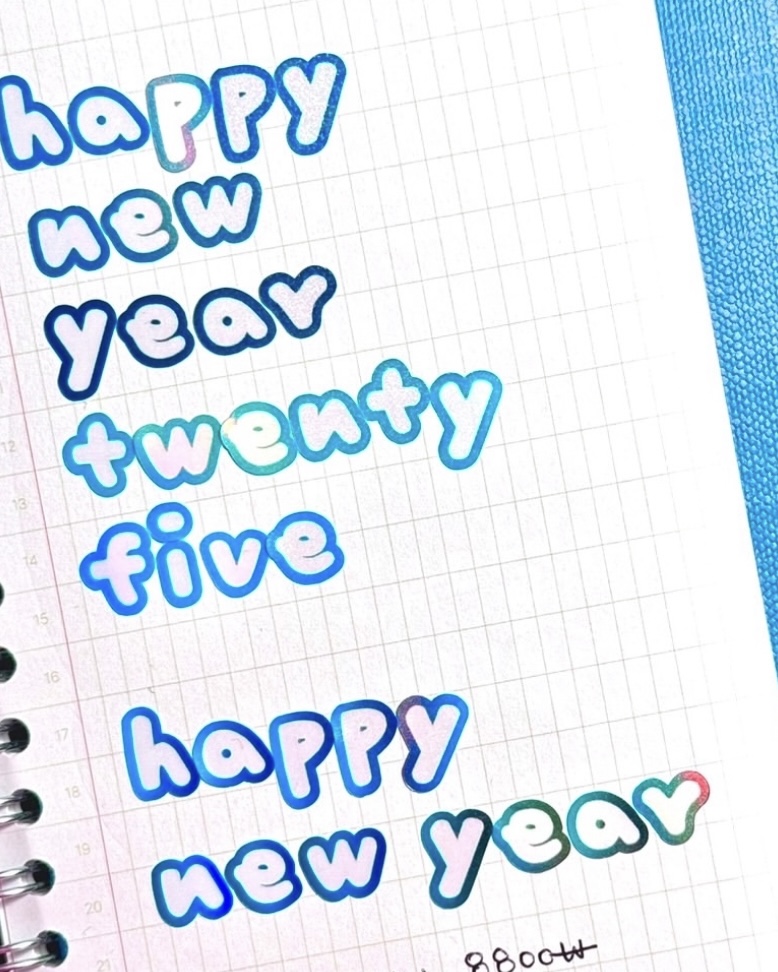 happy
new
year
twenty
five
12
13
14
15
16
happy
17
18
new year
19
20
21
8800₩